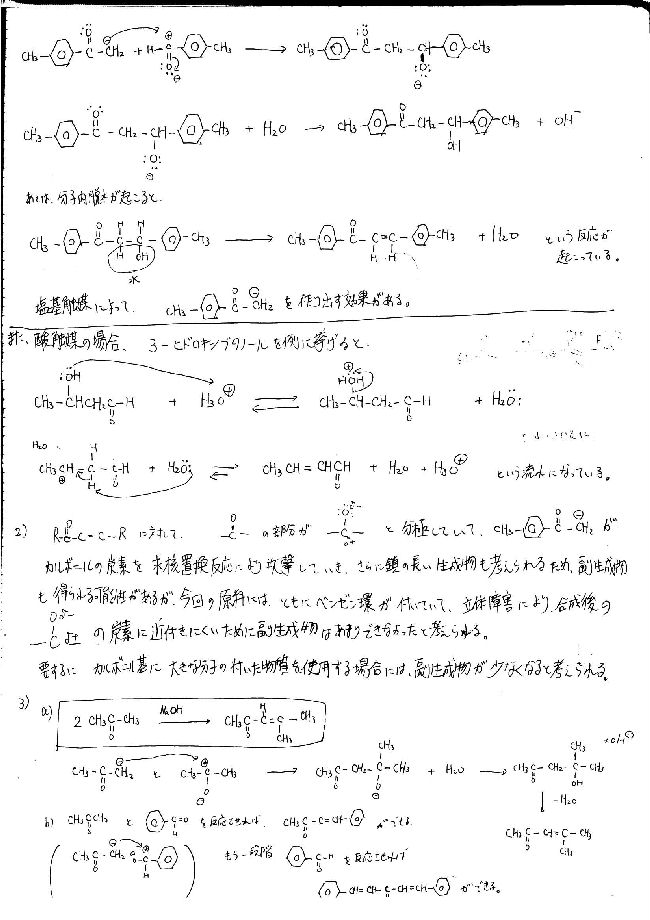 CH₃-⌬-C-CH₂ + H-C-⌬-CH₃ → CH₃-⌬-C-CH₂-CH-⌬-CH₃
CH₃-⌬-C-CH₂-CH-⌬-CH₃ + H₂O → CH₃-⌬-C-CH₂-CH-⌬-CH₃ + OH⁻
あとは、分子内脱水が起こると、
CH₃-⌬-C-C-C-⌬-CH₃ → CH₃-⌬-C-C=C-⌬-CH₃ + H₂O という反応が
水 起こっている。
塩基触媒によって、 CH₃-⌬-C-CH₂ を作り出す効果がある。
また、酸触媒の場合、3-ヒドロキシブタノールを例に挙げると、
CH₃-CHCH₂C-H + H₃O⊕ ⇌ CH₃-CH-CH₂-C-H + H₂O:
CH₃CH-C-C-H + H₂O: ⇌ CH₃CH=CHCH + H₂O + H₃O⊕ という流れになっている。
2) R-C-C-C-R に対して -C- の部分が -C- と分極していて、CH₃-⌬-C-CH₂ が
カルボニルの炭素を求核置換反応により攻撃していき、さらに鎖の長い生成物も考えられるため、副生成物
も得られる可能性があるが、今回の原料には、ともにベンゼン環が付いていて、立体障害により、合成後の
-C- の炭素に近付きにくいために副生成物はあまりできなかったと考えられる。
要するに カルボニル基に大きな分子の付いた物質を使用する場合には、副生成物が少なくなると考えられる。
3) a) 2 CH₃CCH₃ NaOH → CH₃C-C=C-CH₃
CH₃
CH₃-C-CH₂ と CH₃-C-CH₃ → CH₃C-CH₂-C-CH₃ + H₂O → CH₃C-CH₂-C-CH₃ + OH⊖
↓ -H₂O
CH₃C-CH=C-CH₃
b) CH₃CCH₃ と ⌬-C=O を反応させれば、CH₃C-C=CH-⌬ ができる。
(CH₃C-CH₂ C-⌬) もう一段階 ⌬-C-H を反応させれば
⌬-CH=CH-C-CH=CH-⌬ ができる。